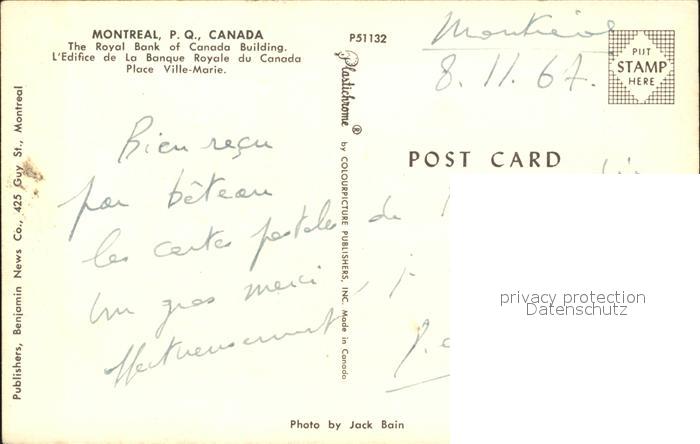 MONTREAL, P. Q., CANADA
The Royal Bank of Canada Building.
L'Edifice de La Banque Royale du Canada
Place Ville-Marie.
P51132
Montréal
8.11.67.
PUT
STAMP
HERE
POST CARD
Bien reçu
par bâteau
les cartes postales de
Un gros merci
Affectueusement
Plastichrome ® by COLOURPICTURE PUBLISHERS, INC. Made in Canada
Publishers, Benjamin News Co., 425 Guy St., Montreal
privacy protection
Datenschutz
Photo by Jack Bain